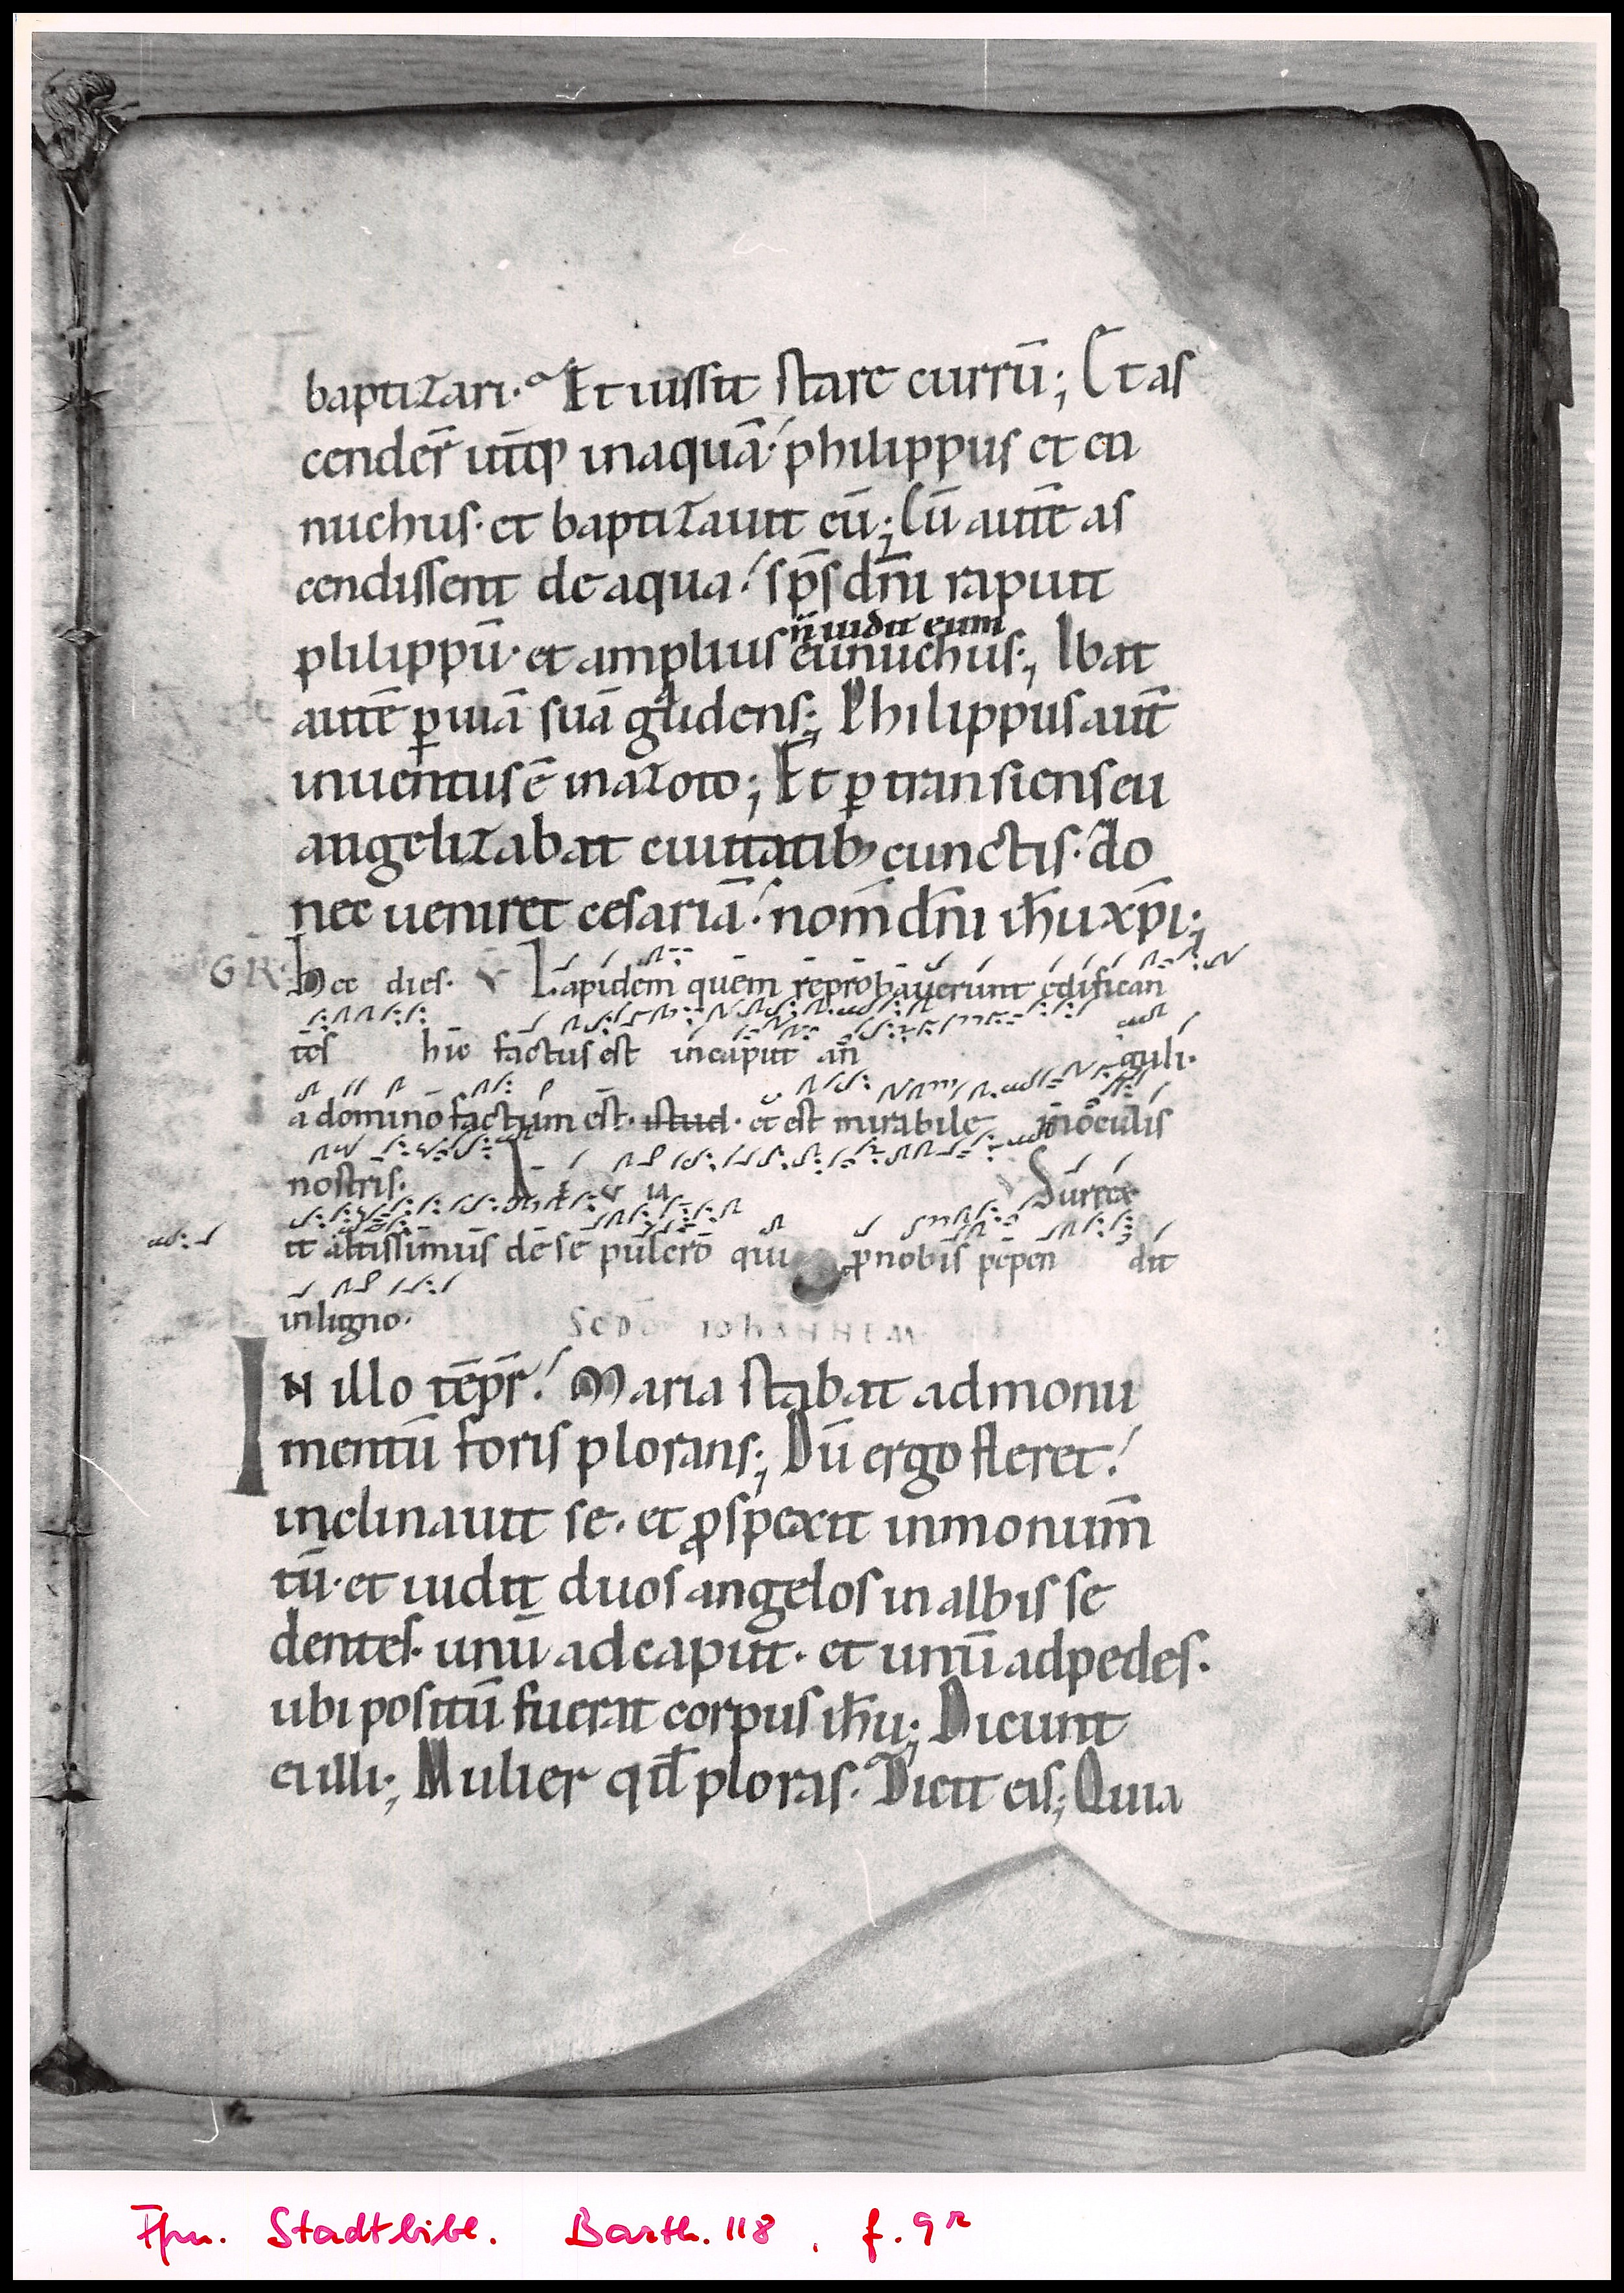 baptizari. Et iussit stare currū; Et as
cender̄ utq̄ inaquā. philippus et eu
nuchus. et baptizauit eū; Cū autē as
cendissent de aqua. sp̄s dn̄i rapuit
plilippū. et amplius eunuchus; Ibat
n̄ uidit eum
autē ꝑ uiā suā gaudens; Philippus aut̄
inuentus ē inazoto; Et ꝑ transiens eu
angelizabat ciuitatib; cunctis. do
nec ueniret cesariā. nom̄ dn̄i ih̄u xp̄i;
GR. Hec dies. V Lapidem quem reprobauerunt edifican
tes hic factus est incaput an
guli.
a domino factum est. istud. et est mirabile inoculis
nostris. A E U IA Surrex
it altissimus de se pulcro qui ꝓnobis pepen dit
inligno. SCDO IOHANNEM
IN illo tēpr̄. Maria stabat admonu
mentū foris plorans; Dū ergo fleret.
inclinauit se. et ꝓspexit inmonum̄
tū. et uidit duos angelos in albis se
dentes. unū adcaput. et unū adpedes.
ubi positū fuerat corpus ih̄u; Dicunt
ei illi; Mulier qid ploras. Dicit eis; Quia
Ffm. Stadtbibl. Barth. 118, f. 9r